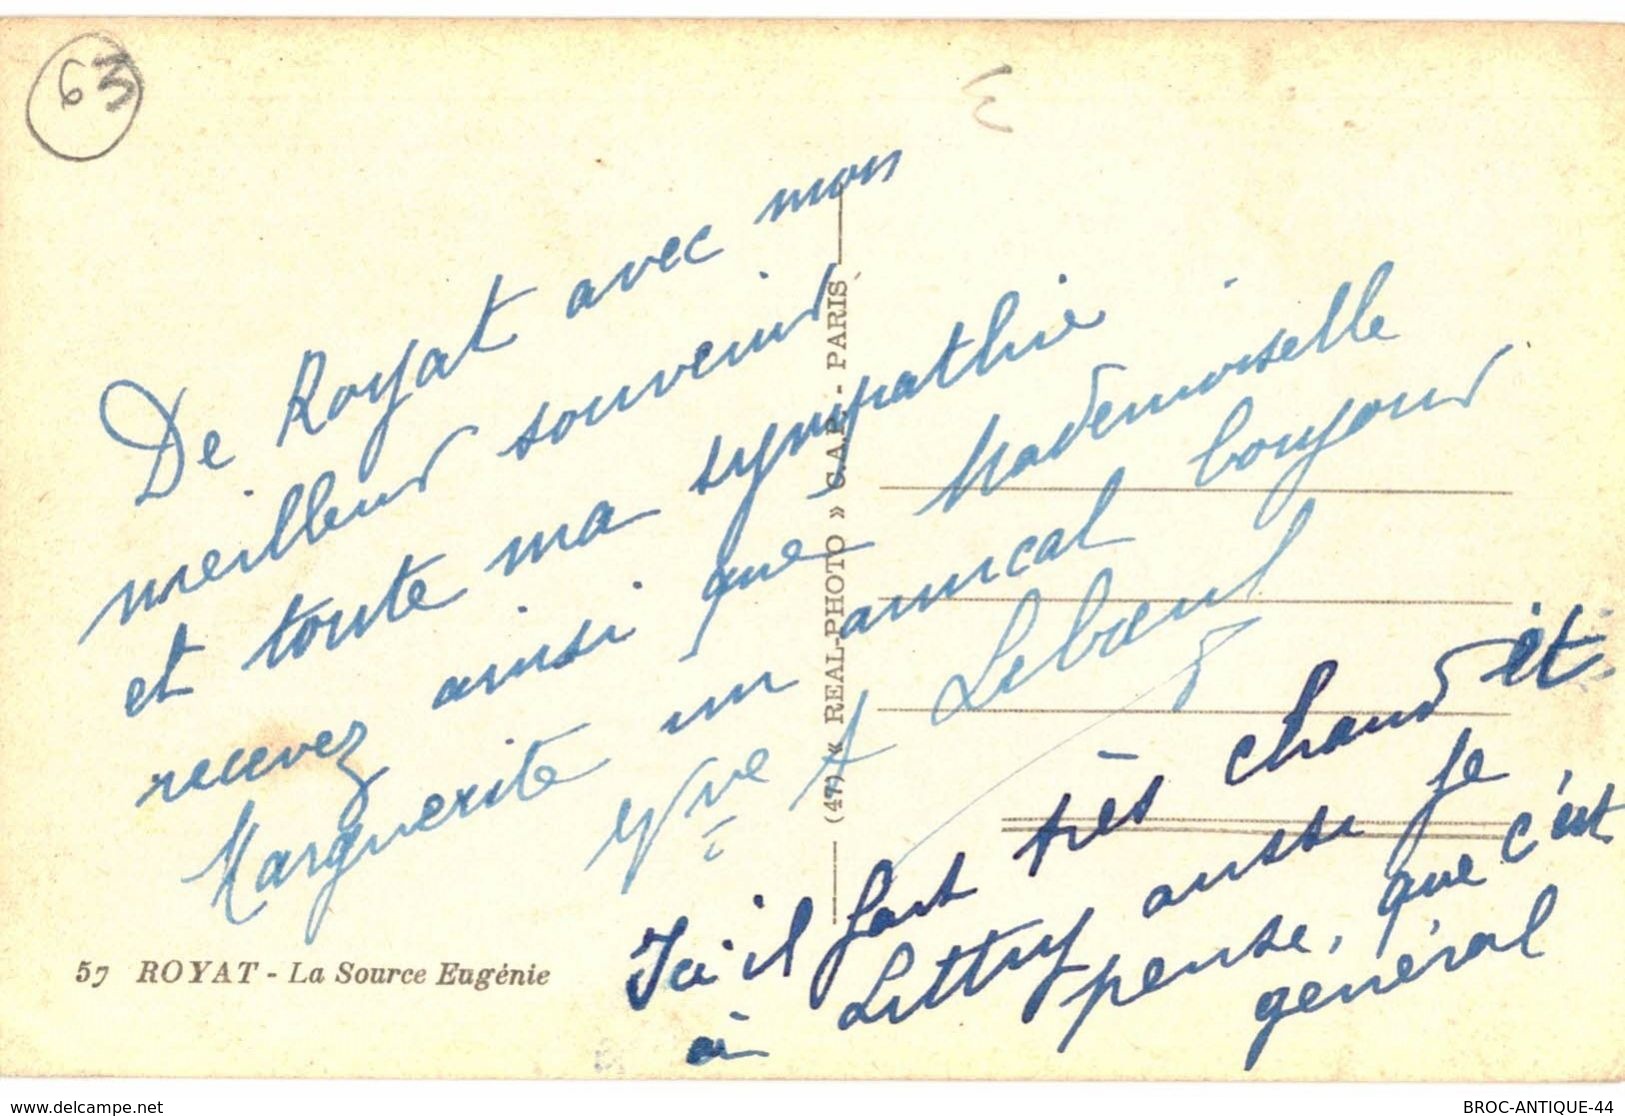 63
De Royat avec mon
meilleur souvenir
et toute ma sympathie
recevez ainsi que Mademoiselle
Marguerite un amical bonjour
Vve A Leboeuf
Ici il fait très chaud et
à Littry aussi je
pense, que c'est
général
57 ROYAT - La Source Eugénie
(47) « REAL-PHOTO » C.A.P. - PARIS
www.delcampe.net
BROC-ANTIQUE-44